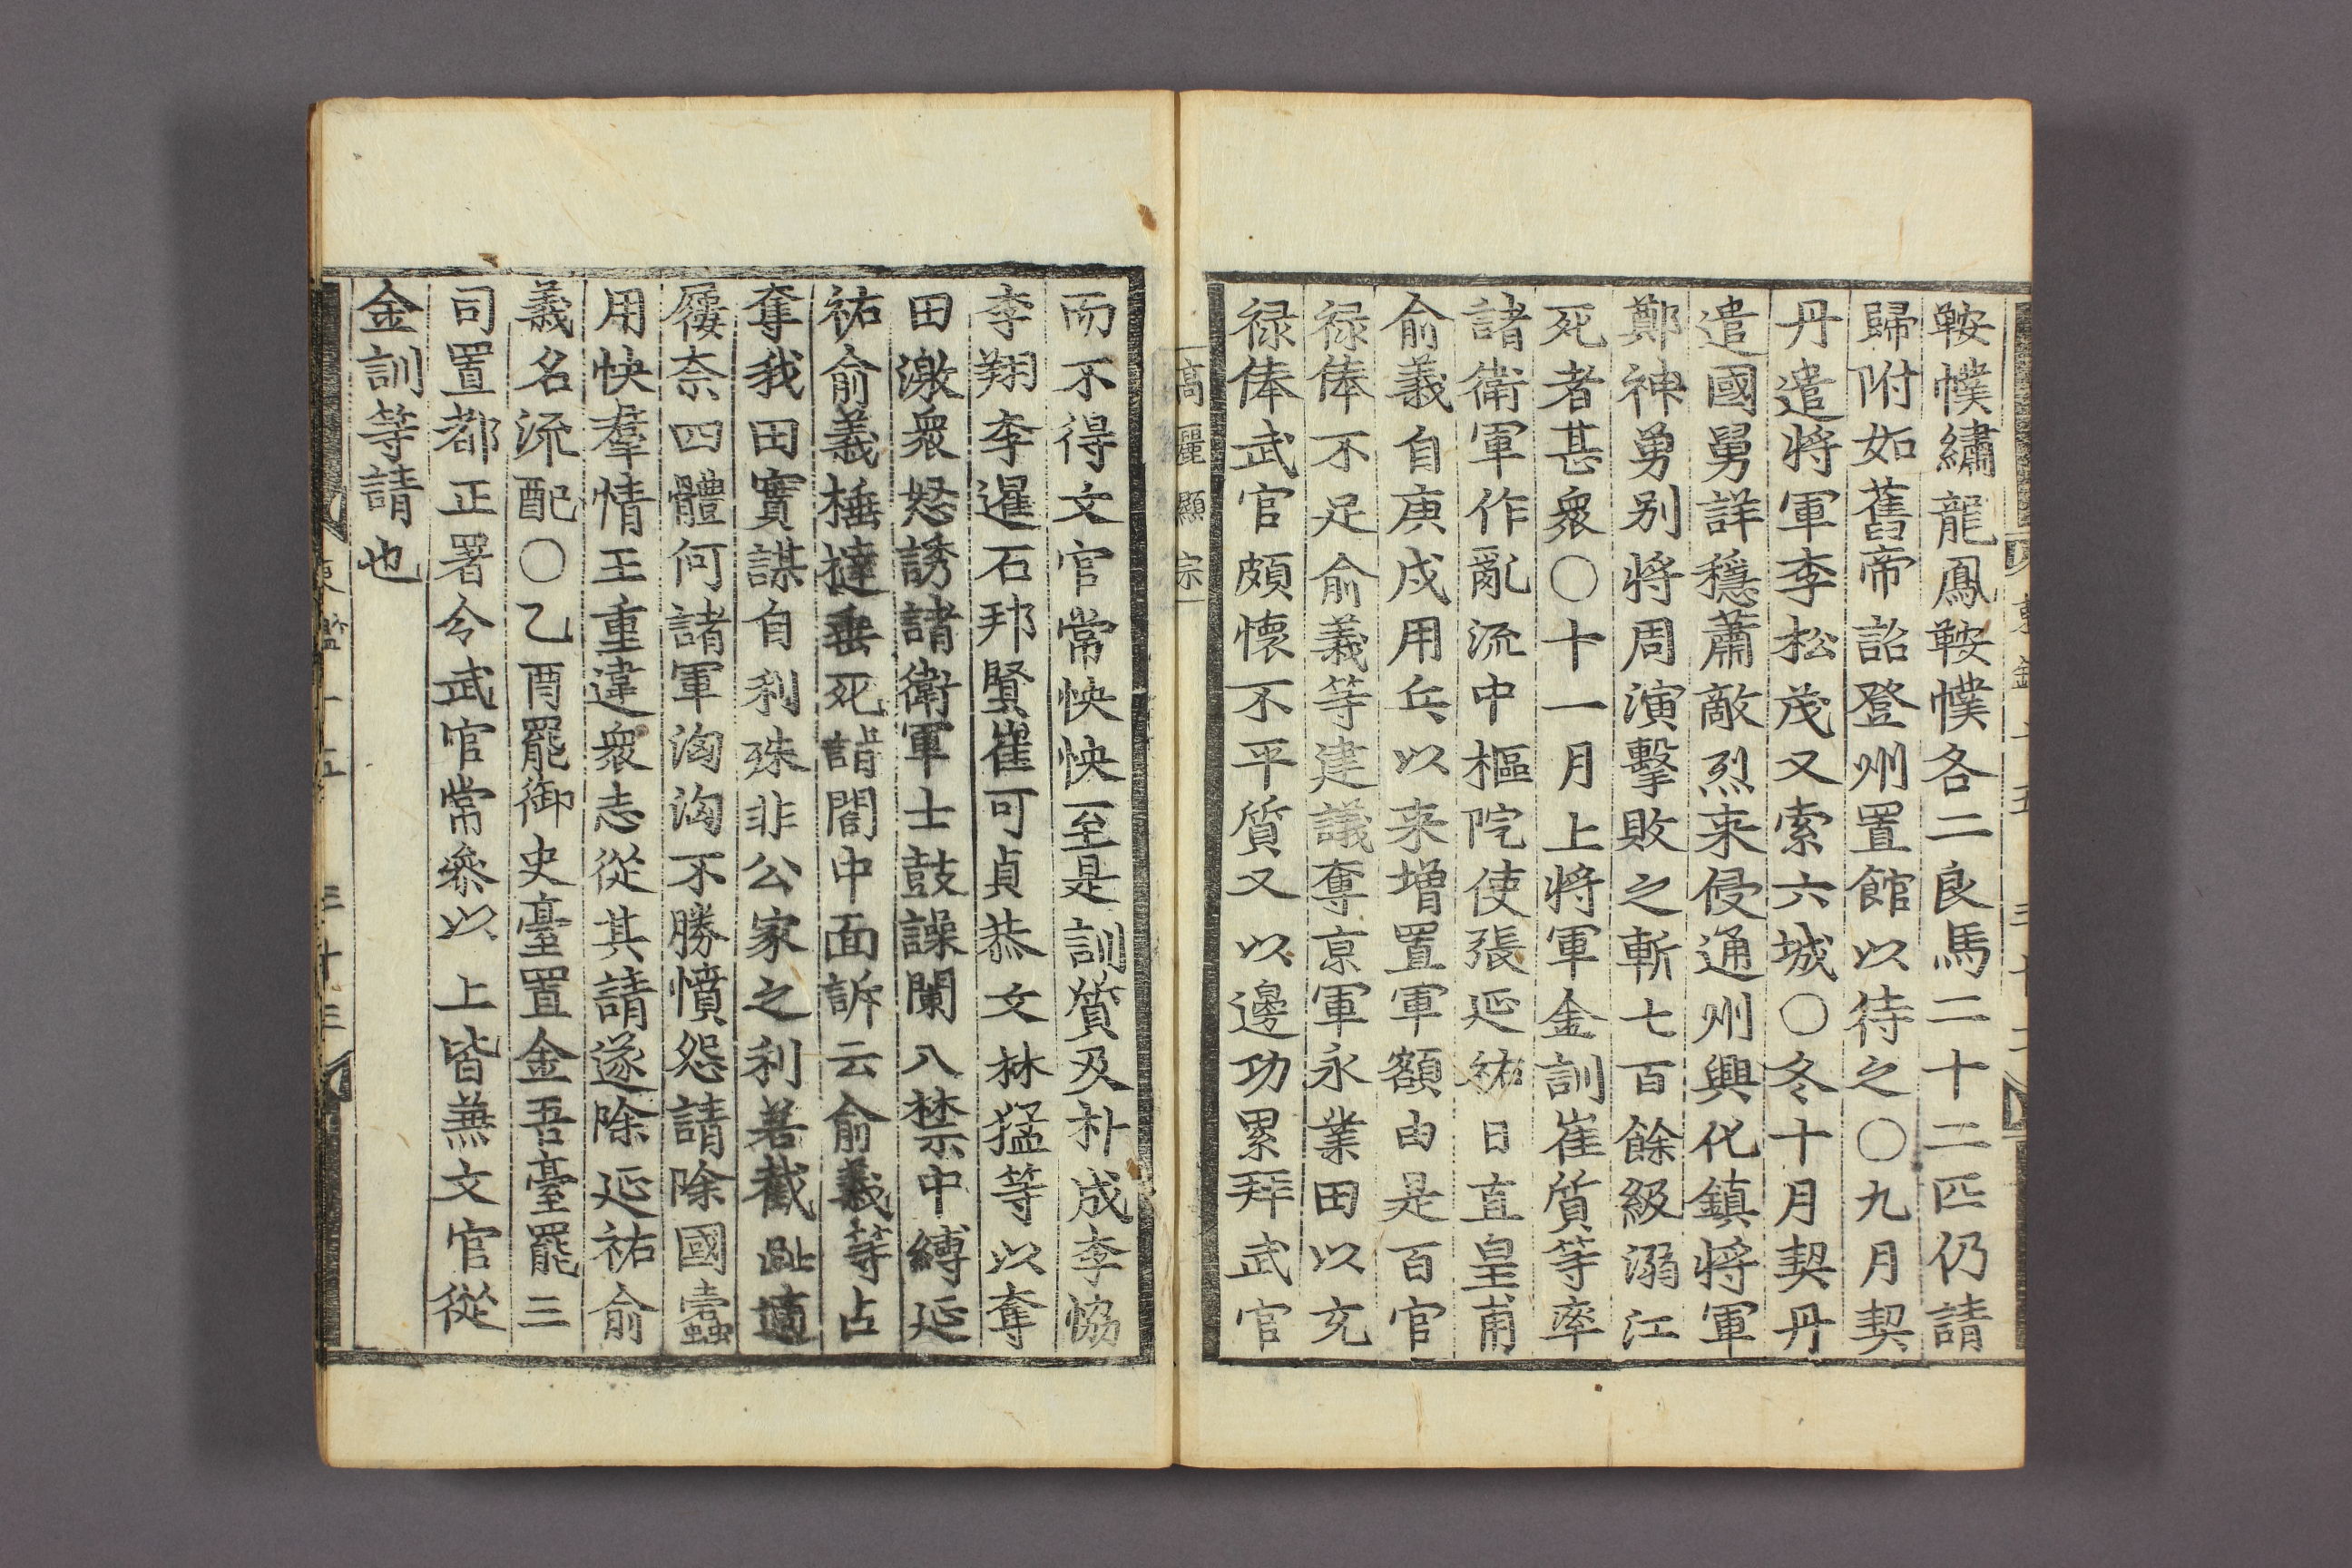 鞍幞繡龍鳳鞍幞各二良馬二十二匹仍請
歸附如舊帝詔登州置館以待之○九月契
丹遣將軍李松茂又索六城○冬十月契丹
遣國舅詳穩蕭敵烈来侵通州興化鎮將軍
鄭神勇别將周演擊敗之斬七百餘級溺江
死者甚衆○十一月上將軍金訓崔質等率
諸衛軍作亂流中樞院使張延祐日直皇甫
俞義自庚戌用兵以来增置軍額由是百官
禄俸不足俞義等建議奪京軍永業田以充
禄俸武官頗懷不平質又以邊功累拜武官
高麗顯宗一
而不得文官常怏怏至是訓質及朴成李恊
李翔李暹石邦賢崔可貞恭文林猛等以奪
田激衆怒誘諸衛軍士鼓譟闌入禁中縛延
祐俞義捶撻垂死詣閤中面訴云俞義等占
奪我田實謀自利殊非公家之利若截趾適
屨奈四體何諸軍洶洶不勝憤怨請除國蠹
用快羣情王重違衆志從其請遂除延祐俞
義名流配○乙酉罷御史臺置金吾臺罷三
司置都正署令武官常叅以上皆兼文官從
金訓等請也
三十三